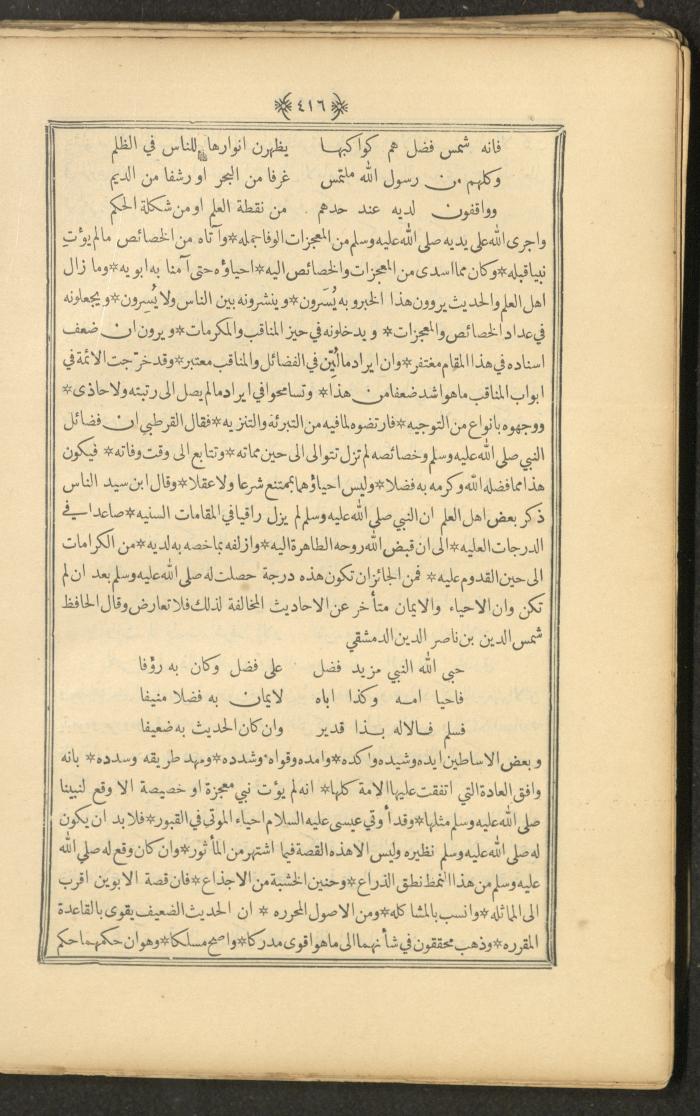 ٤١٦
فانه شمس فضل هم كواكبها يظهرن انوارها للناس في الظلم
وكلهم من رسول الله ملتمس غرفا من البحر او رشفا من الديم
وواقفون لديه عند حدهم من نقطة العلم او من شكلة الحكم
واجرى الله على يديه صلى الله عليه وسلم من المعجزات الوفا جمله * وآتاه من الخصائص مالم يؤت
نبيا قبله * وكان مما اسدى من المعجزات والخصائص اليه * احياؤه حتى آمنا به ابويه * وما زال
اهل العلم والحديث يروون هذا الخبر وبه يُسَرون * وينشرونه بين الناس ولا يُسِرون * ويجعلونه
في عداد الخصائص والمعجزات * ويدخلونه في حيز المناقب والمكرمات * ويرون ان ضعف
اسناده في هذا المقام مغتفر * وان ايراد مالُيّن في الفضائل والمناقب معتبر * وقد خرّجت الائمة في
ابواب المناقب ما هو اشد ضعفا من هذا * وتسامحوا في ايراد مالم يصل الى رتبته ولا حاذى *
ووجهوه بانواع من التوجيه * فارتضوه لما فيه من التبرئة والتنزيه * فقال القرطبي ان فضائل
النبي صلى الله عليه وسلم وخصائصه لم تزل تتوالى الى حين مماته * وتتابع الى وقت وفاته * فيكون
هذا مما فضله الله وكرمه به فضلا * وليس احياؤهما بممتنع شرعا ولا عقلا * وقال ابن سيد الناس
ذكر بعض اهل العلم ان النبي صلى الله عليه وسلم لم يزل راقيا في المقامات السنيه * صاعدا في
الدرجات العليه * الى ان قبض الله روحه الطاهرة اليه * وازلفه بما خصه به لديه * من الكرامات
الى حين القدوم عليه * فمن الجائز ان تكون هذه درجة حصلت له صلى الله عليه وسلم بعد ان لم
تكن وان الاحياء والايمان متأخر عن الاحاديث المخالفة لذلك فلا تعارض وقال الحافظ
شمس الدين بن ناصر الدين الدمشقي
حبى الله النبي مزيد فضل على فضل وكان به رؤفا
فاحيا امه وكذا اباه لايمان به فضلا منيفا
فسلم فالاله بذا قدير وان كان الحديث به ضعيفا
وبعض الاساطين ايده وشيده واكده * وامده وقواه وشدده * ومهد طريقه وسدده * بانه
وافق العادة التي اتفقت عليها الامة كلها * انه لم يؤت نبي معجزة او خصيصة الا وقع لنبينا
صلى الله عليه وسلم مثلها * وقد أوتي عيسى عليه السلام احياء الموتى في القبور * فلا بد ان يكون
له صلى الله عليه وسلم نظيره وليس الا هذه القصة فيما اشتهر من المأثور * وان كان وقع له صلى الله
عليه وسلم من هذا النمط نطق الذراع * وحنين الخشبة من الاجذاع * فان قصة الابوين اقرب
الى المماثله * وانسب بالمشاكله * ومن الاصول المحرره * ان الحديث الضعيف يقوى بالقاعدة
المقرره * وذهب محققون في شأنهما الى ما هو اقوى مدركا * واصح مسلكا * وهو ان حكمهما حكم